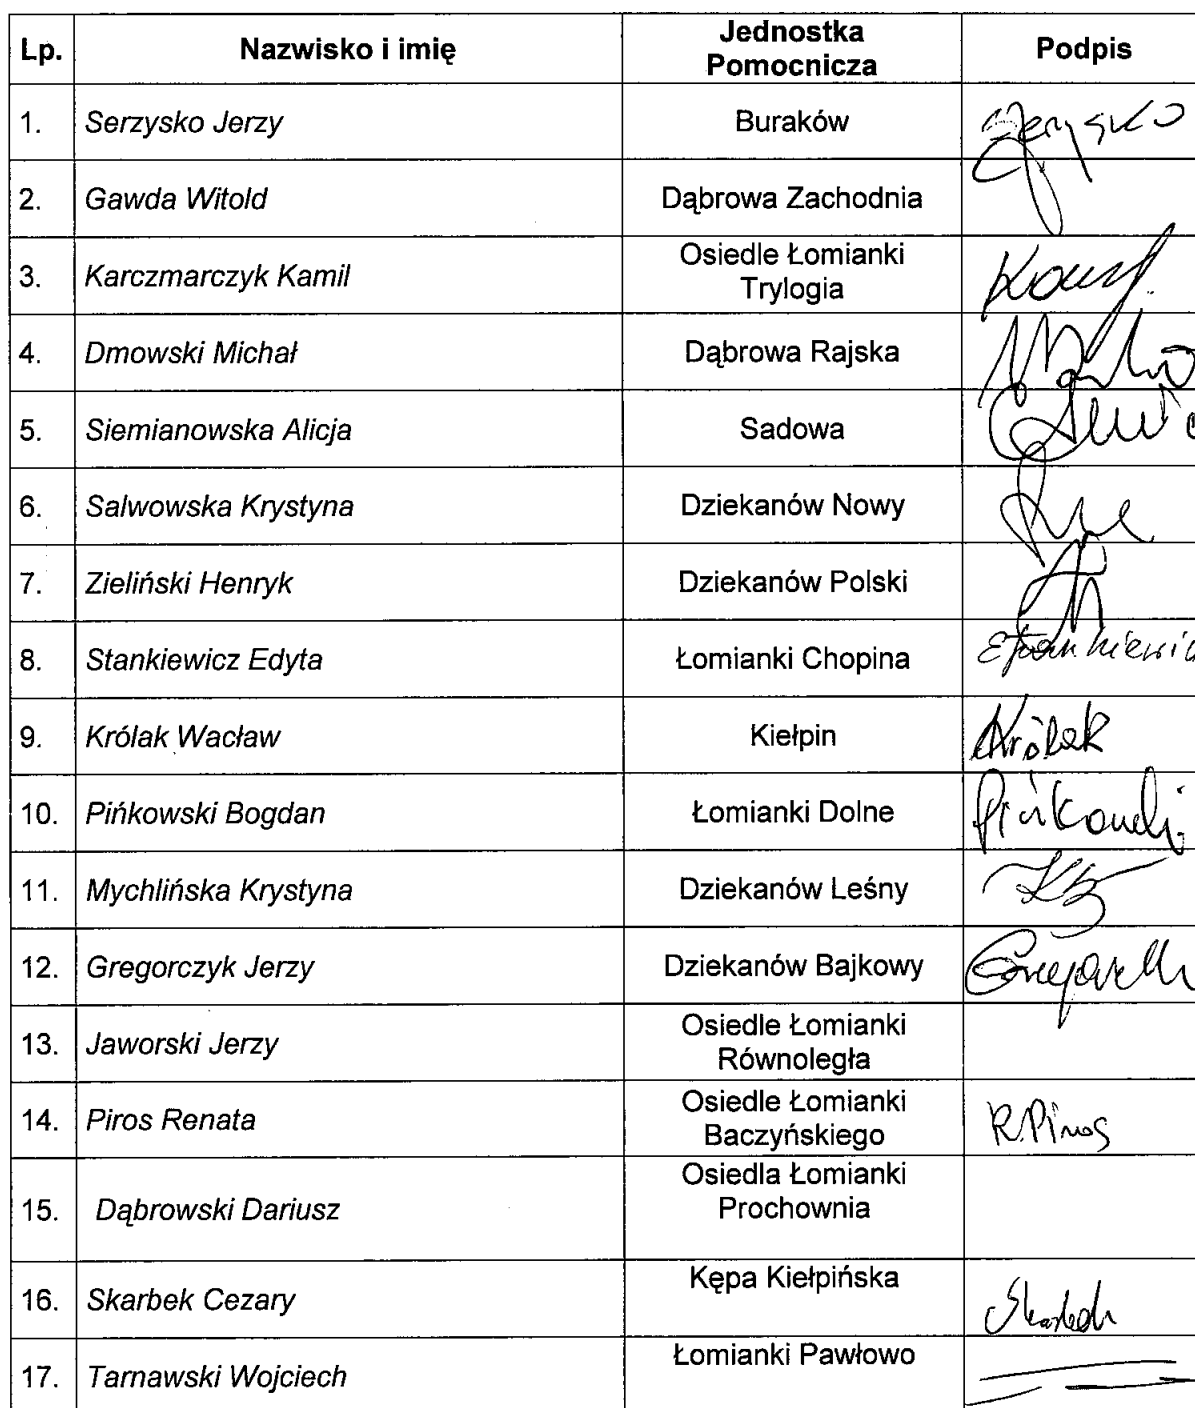 Lp. Nazwisko i imię Jednostka Pomocnicza Podpis
1. Serzysko Jerzy Buraków Serzysko
2. Gawda Witold Dąbrowa Zachodnia
3. Karczmarczyk Kamil Osiedle Łomianki
Trylogia
4. Dmowski Michał Dąbrowa Rajska
5. Siemianowska Alicja Sadowa
6. Salwowska Krystyna Dziekanów Nowy
7. Zieliński Henryk Dziekanów Polski
8. Stankiewicz Edyta Łomianki Chopina
9. Królak Wacław Kiełpin Królak
10. Pińkowski Bogdan Łomianki Dolne Pińkowski
11. Mychlińska Krystyna Dziekanów Leśny
12. Gregorczyk Jerzy Dziekanów Bajkowy
13. Jaworski Jerzy Osiedle Łomianki
Równoległa
14. Piros Renata Osiedle Łomianki
Baczyńskiego R.Piros
15. Dąbrowski Dariusz Osiedla Łomianki
Prochownia
16. Skarbek Cezary Kępa Kiełpińska Skarbek
17. Tarnawski Wojciech Łomianki Pawłowo